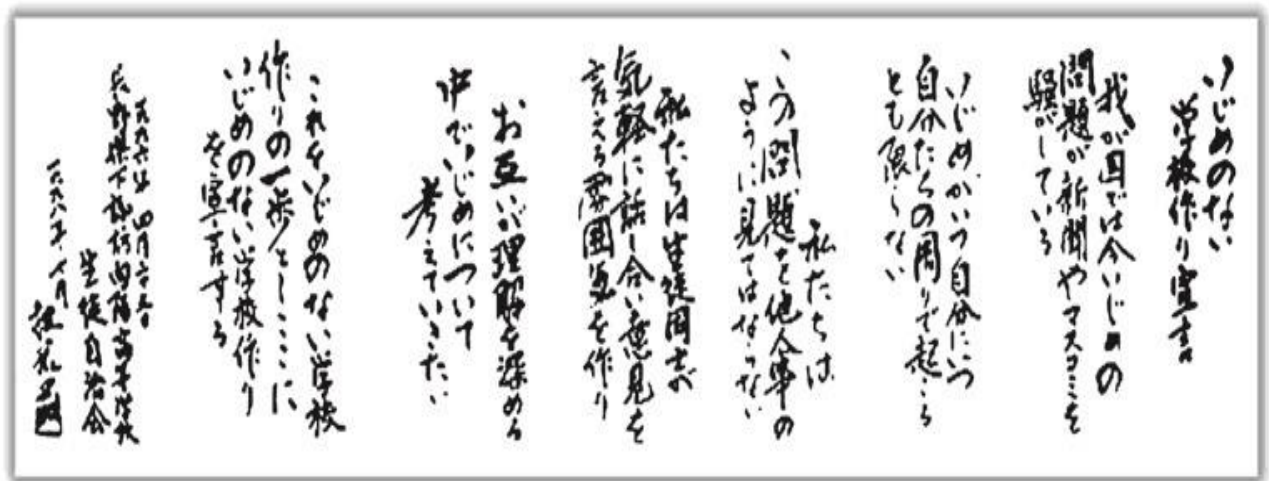 いじめのない
学校作り宣言
我が国では今いじめの
問題が新聞やマスコミを
騒がしている
いじめがいつ自分にいつ
自分たちの周りで起こる
とも限らない
私たちは
こういう問題を他人事の
ように見てはならない
私たちは生徒同士が
気軽に話し合い意見を
言える雰囲気を作り
お互いが理解を深める
中でいじめについて
考えていきたい
これをいじめのない学校
作りの一歩としここに
いじめのない学校作り
を宣言する
一九九六年 四月二十五日
長野県下諏訪向陽高等学校
生徒自治会